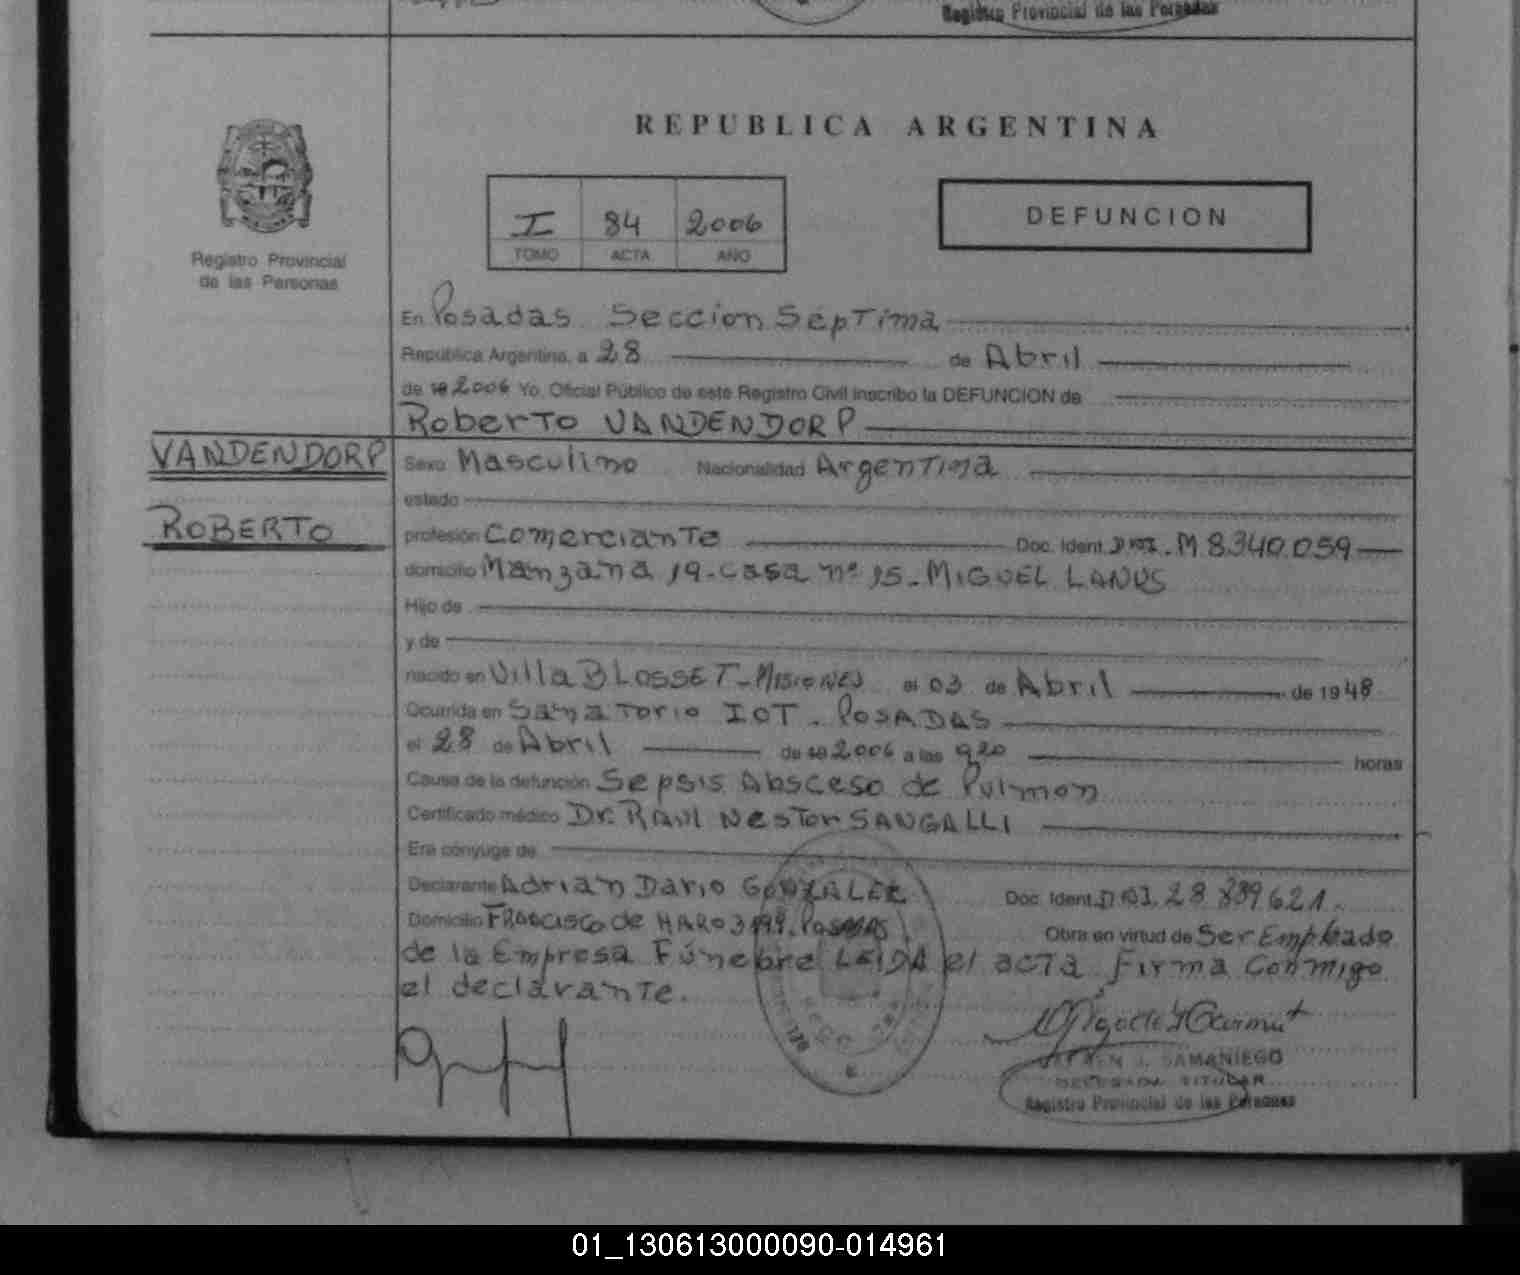 Registro Provincial de las Personas
REPUBLICA ARGENTINA
I 84 2006
TOMO ACTA AÑO
DEFUNCION
Registro Provincial
de las Personas
En Posadas Seccion SépTima
República Argentina, a 28 de Abril
de 19 2006 Yo, Oficial Público de este Registro Civil inscribo la DEFUNCION de
Roberto VANDENDORP
VANDENDORP
ROBERTO
Sexo Masculino Nacionalidad Argentina
estado
profesión Comerciante Doc. Ident. DNI. M 8.340.059
domicilio Manzana 19-casa nº 15-MIGUEL LANUS
Hijo de
y de
nacido en Villa BLOSSET-MISIONES el 03 de Abril de 1948
Ocurrida en Sanatorio IOT - POSADAS
el 28 de Abril de 19 2006 a las 9 20 horas
Causa de la defunción Sepsis Absceso de Pulmon
Certificado médico Dr. RAUL NESTOR SANGALLI
Era cónyuge de
Declarante Adrian Dario GONZALEZ Doc. Ident. DNI. 28 839621.
Domicilio FRANCISCO de HARO 3199. POSADAS Obra en virtud de Ser Empleado
de la Empresa Fúnebre LEIDA el acta firma conmigo
el declarante.
J. SAMANIEGO
DELEGADA TITULAR
Registro Provincial de las Personas
01_130613000090-014961